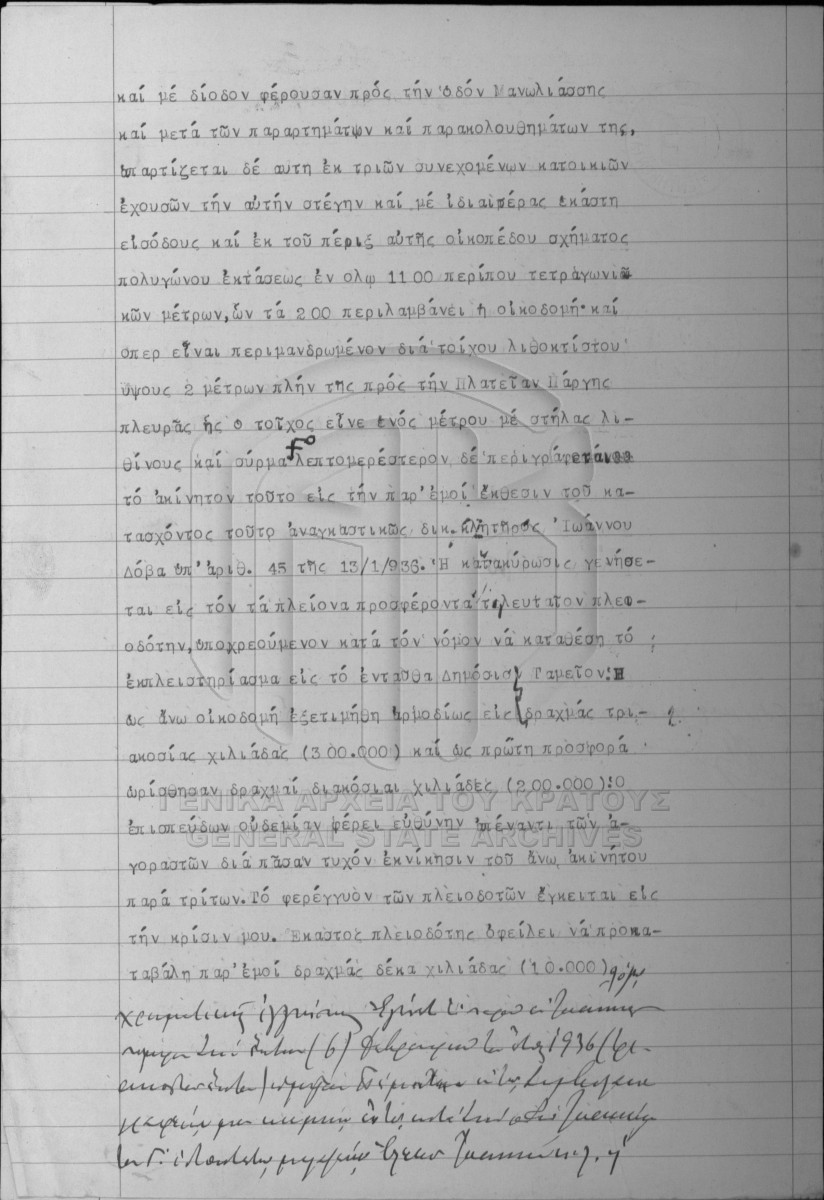 καί μέ δίοδον φέρουσαν πρός τήν ὁδόν Μανωλιάσσης
καί μετά τῶν παραρτημάτων καί παρακολουθημάτων της,
ἀπαρτίζεται δέ αὕτη ἐκ τριῶν συνεχομένων κατοικιῶν
ἐχουσῶν τήν αὐτήν στέγην καί μέ ἰδιαιτέρας ἑκάστη
εἰσόδους καί ἐκ τοῦ πέριξ αὐτῆς οἰκοπέδου σχήματος
πολυγώνου ἐκτάσεως ἐν ὅλῳ 1100 περίπου τετραγωνι
κῶν μέτρων, ὧν τά 200 περιλαμβάνει ἡ οἰκοδομή· καί
ὅπερ εἶναι περιμανδρωμένον διά τοίχου λιθοκτίστου
ὕψους 2 μέτρων πλήν τῆς πρός τήν Πλατεῖαν Πάργης
πλευρᾶς ἧς ὁ τοῖχος εἶνε ἑνός μέτρου μέ στήλας λι-
θίνους καί σύρμα λεπτομερέστερον δέ περιγράφεται
τό ἀκίνητον τοῦτο εἰς τήν παρ' ἐμοί ἔκθεσιν τοῦ κα-
τασχόντος τοῦτο ἀναγκαστικῶς δικ. κλητῆρος Ἰωάννου
Δόβα ὑπ' ἀριθ. 45 τῆς 13/1/936. Ἡ κατακύρωσις γενήσε-
ται εἰς τόν τά πλείονα προσφέροντα τελευταῖον πλειο-
δότην, ὑποχρεούμενον κατά τόν νόμον νά καταθέσῃ τό
ἐκπλειστηρίασμα εἰς τό ἐνταῦθα Δημόσιον Ταμεῖον. Ἡ
ὡς ἄνω οἰκοδομή ἐξετιμήθη ἁρμοδίως εἰς δραχμάς τρι-
ακοσίας χιλιάδας (300.000) καί ὡς πρώτη προσφορά
ὡρίσθησαν δραχμαί διακόσιαι χιλιάδες (200.000). Ὁ
ἐπισπεύδων οὐδεμίαν φέρει εὐθύνην ἀπέναντι τῶν ἀ-
γοραστῶν διά πᾶσαν τυχόν ἐκνίκησιν τοῦ ἄνω ἀκινήτου
παρά τρίτων. Τό φερέγγυον τῶν πλειοδοτῶν ἔγκειται εἰς
τήν κρίσιν μου. Ἕκαστος πλειοδότης ὀφείλει νά προκα-
ταβάλῃ παρ' ἐμοί δραχμάς δέκα χιλιάδας (10.000) λόγῳ
χρηματικῆς ἐγγυήσεως
(6) Φεβρουαρίου τοῦ ἔτους 1936
ΓΕΝΙΚΑ ΑΡΧΕΙΑ ΤΟΥ ΚΡΑΤΟΥΣ
GENERAL STATE ARCHIVES